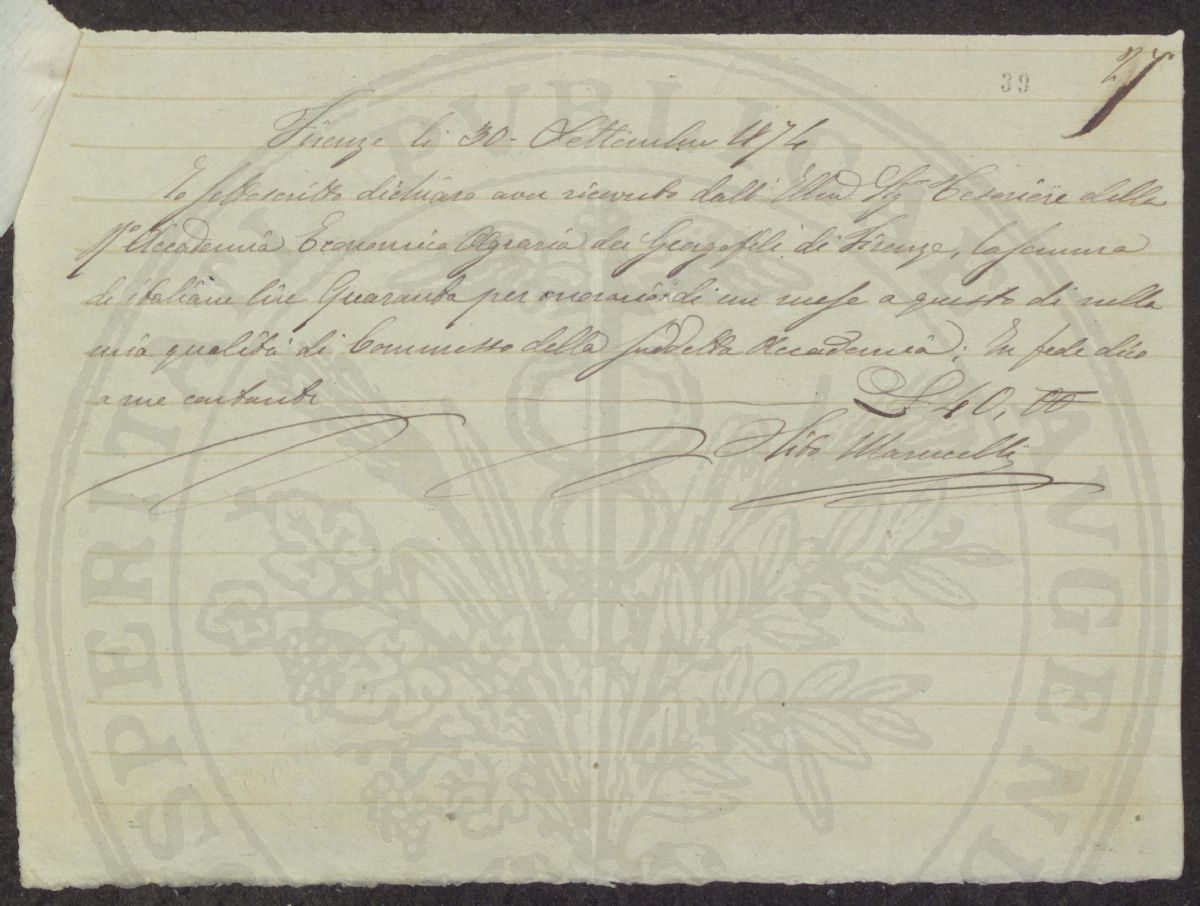 39
27
Firenze li 30 - Settembre 1874
Io sottoscritto dichiaro aver ricevuto dall' Illmo Sigr Tesoriere della
Rª Accademia Economico Agraria dei Georgofili di Firenze, la somma
di italiane lire Quaranta per onorario di un mese a questo di nella
mia qualità di Commesso della suddetta Accademia; In fede dico
a me contanti ——— £ 40, 00
Marucelli
PROSPERITATI PVBLICAE AVGENDAE